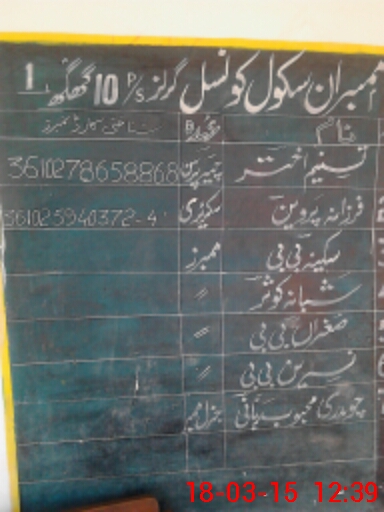 ممبران سکول کونسل گرلز P/S 10 گھگھ 1
نام عہدہ شناختی کارڈ نمبرز
تسنیم اختر چیئرپرسن 3610278658868
فرزانہ پروین سیکرٹری 361025940372-4
سکینہ بی بی ممبرز
شبانہ کوثر 〃
صغراں بی بی 〃
نسرین بی بی 〃
چوہدری محبوب ربانی جنرل ممبر
18-03-15 12:39